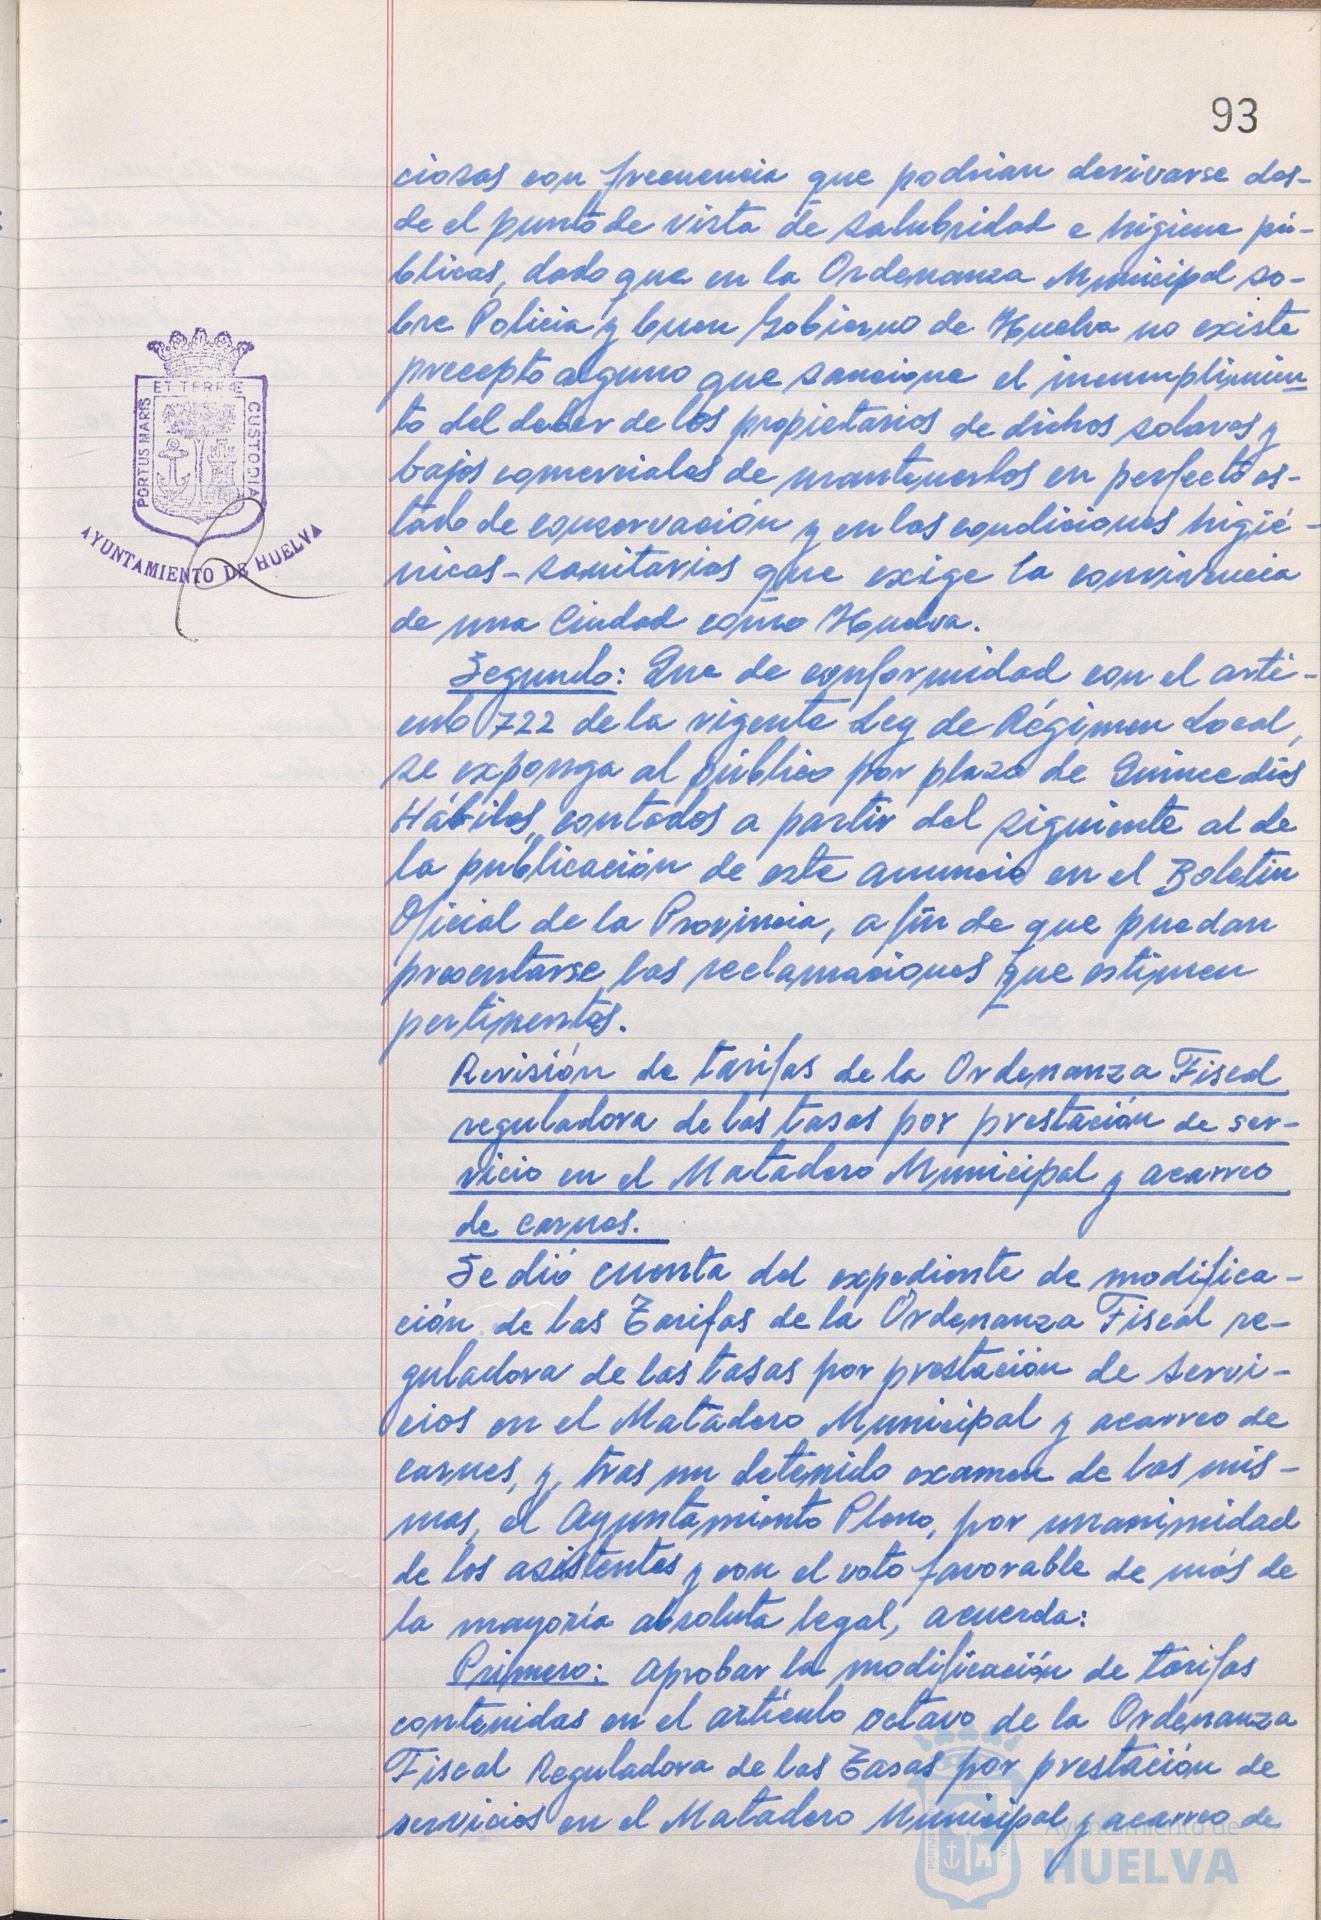 93
ciosas con frecuencia que podrian derivarse des-
de el punto de vista de salubridad e higiene pú-
blicas, dado que en la Ordenanza Municipal so-
bre Policía y buen Gobierno de Huelva no existe
precepto alguno que sancione el incumplimien
to del deber de los propietarios de dichos solares y
bajos comerciales de mantenerlos en perfecto es-
tado de conservación y en las condiciones higié-
nicas-sanitarias que exige la convivencia
de una Ciudad como Huelva.
Segundo: Que de conformidad con el artí-
culo 722 de la vigente Ley de Régimen Local,
se exponga al público por plazo de Quince días
Hábiles, contados a partir del siguiente al de
la publicación de este anuncio en el Boletín
Oficial de la Provincia, a fin de que puedan
presentarse las reclamaciones que estimen
pertinentes.
Revisión de tarifas de la Ordenanza Fiscal
reguladora de las tasas por prestación de ser-
vicio en el Matadero Municipal y acarreo
de carnes.
Se dió cuenta del expediente de modifica-
ción de las Tarifas de la Ordenanza Fiscal re-
guladora de las tasas por prestación de servi-
cios en el Matadero Municipal y acarreo de
carnes, y, tras un detenido examen de las mis-
mas, el Ayuntamiento Pleno, por unanimidad
de los asistentes y con el voto favorable de más de
la mayoría absoluta legal, acuerda:
Primero: Aprobar la modificación de tarifas
contenidas en el artículo octavo de la Ordenanza
Fiscal Reguladora de las Tasas por prestación de
servicios en el Matadero Municipal y acarreo de
PORTUS MARIS
ET TERRÆ
CUSTODIA
AYUNTAMIENTO DE HUELVA
Ayuntamiento de
HUELVA